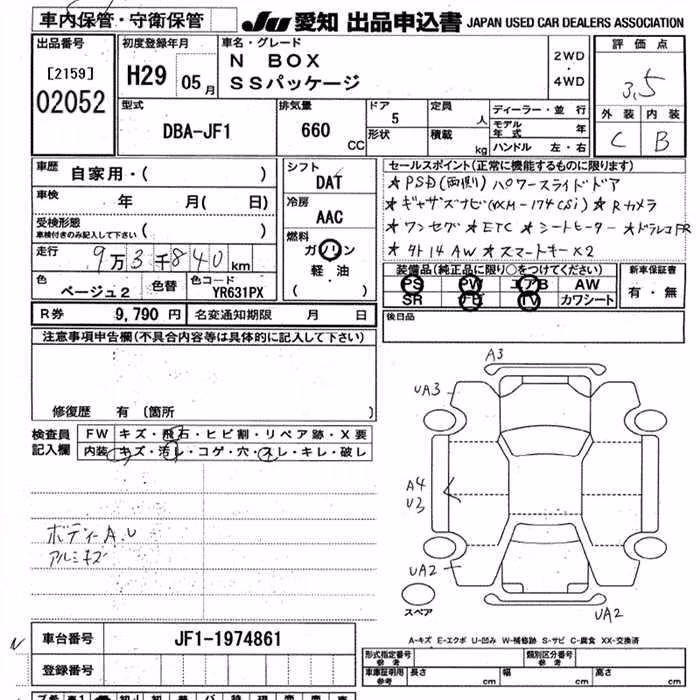 車内保管・守衛保管
JU 愛知 出品申込書 JAPAN USED CAR DEALERS ASSOCIATION
出品番号
[2159]
02052
初度登録年月
H29 05月
車名・グレード
N BOX
SSパッケージ
2WD
・
4WD
評価点
3.5
外装 内装
C B
型式
DBA-JF1
排気量
660 CC
ドア
5
形状
定員
人
積載
kg
ディーラー・並行
モデル年式 年
ハンドル 左・右
車歴
自家用・( )
車検
年 月( 日)
受検形態
車検付きのみ記入して下さい ( )
走行
9万3千840km
色
ベージュ2
色替
色コード
YR631PX
シフト
DAT
冷房
AAC
燃料
ガソリン
軽・油
( )
セールスポイント(正常に機能するものに限ります)
★PSD(両側)パワースライドドア
★ギャザズナビ(VXM-174CSi)★Rカメラ
★ワンセグ★ETC★シートヒーター★ドラレコFR
★タト14AW★スマートキー×2
装備品(純正品に限り○をつけてください)
PS PW エアB AW
SR ナビ TV カワシート
新車保証書
有・無
R券 9,790円
名変通知期限 月 日
後日品
注意事項申告欄(不具合内容等は具体的に記入して下さい)
修復歴 有(箇所 )
検査員
記入欄
FW キズ・飛石・ヒビ割・リペア跡・X要
内装 キズ・汚レ・コゲ・穴・スレ・キレ・破レ
ボディーA.U
アルミキズ
A3
UA3
A4
U3
UA2
UA2
スペア
A-キズ E-エクボ U-凹み W-補修跡 S-サビ C-腐食 XX-交換済
車台番号 JF1-1974861
登録番号
形式指定番号
参考
類別区分番号
参考
車庫証明用
参考
長さ cm 幅 cm 高さ cm